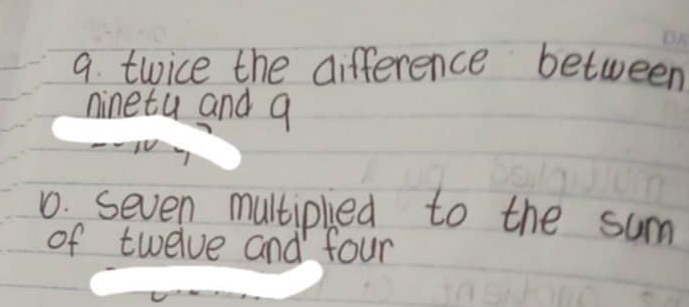 9. twice the difference between
ninety and 9
10. seven multiplied to the sum
of twelve and four